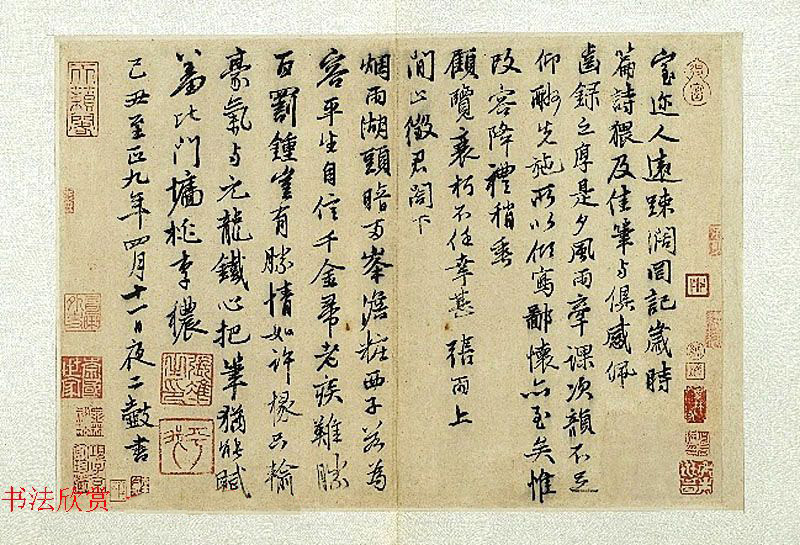 室迩人遠踈濶罔記歲時
篇詩猥及佳筆与俱感佩
齒録之厚是夕風雨率課次韻不足
仰酬先施所以傾寫鄙懷亦至矣惟
改容降禮稍垂
顧覽衰朽不任幸甚 張雨上
閒止徵君閤下
烟雨湖頭暗两峯澹粧西子若為
容平生自信千金帚老疾難勝
百罰鍾崔有勝情如許椽只輸
豪氣与元龍鐵心把筆猶能賦
羞比門墻桃李穠
己丑至正九年四月十一日夜二鼓書
书法欣赏